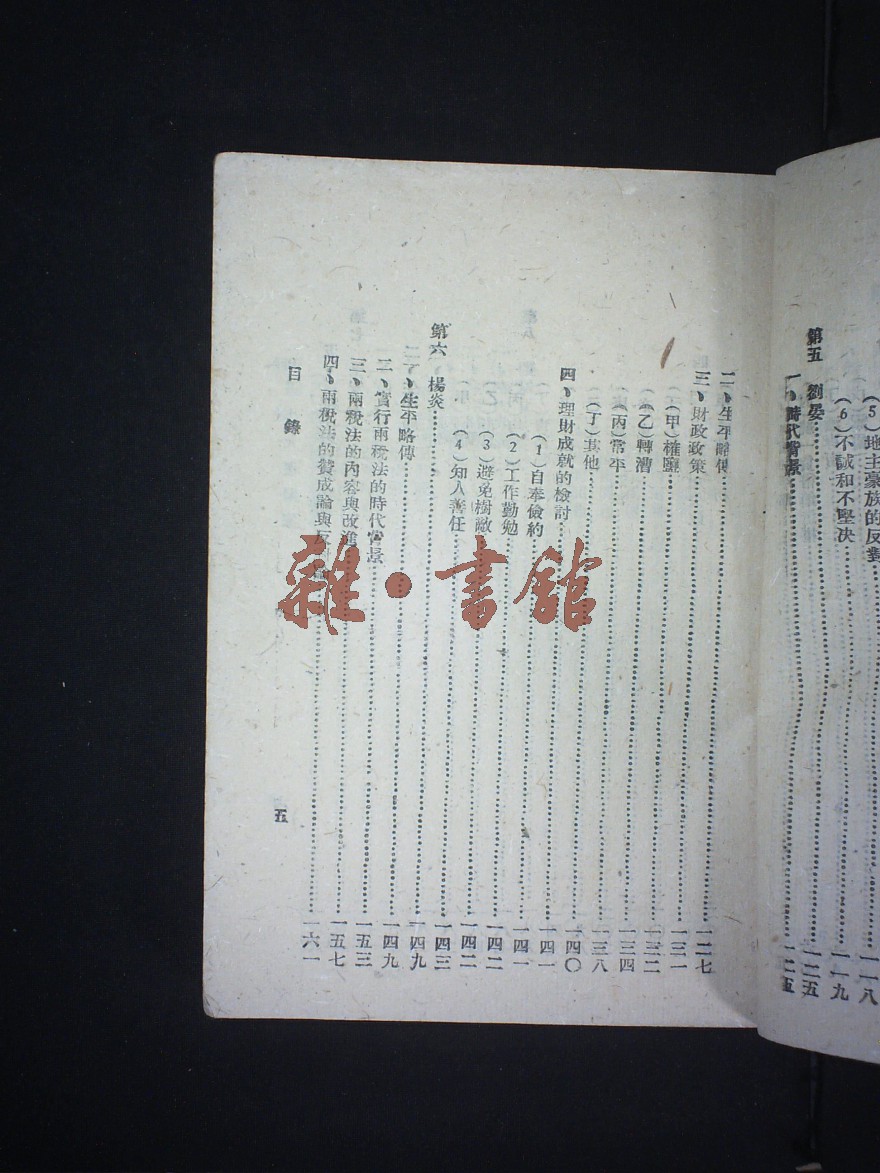 （5）地主豪族的反對……一一八
（6）不誠和不堅決……一一九
第五　劉晏……一二五
一、時代背景……一二五
二、生平略傳……一二七
三、財政政策……一三一
（甲）榷鹽……一三二
（乙）轉漕……一三四
（丙）常平……一三八
（丁）其他……一四〇
四、理財成就的檢討……一四一
（1）自奉儉約……一四一
（2）工作勤勉……一四二
（3）避免樹敵……一四二
（4）知人善任……一四三
第六　楊炎……一四九
一、生平略傳……一四九
二、實行兩稅法的時代背景……一五三
三、兩稅法的內容與改進……一五七
四、兩稅法的贊成論與反……一六一
目錄
五
雜·書館